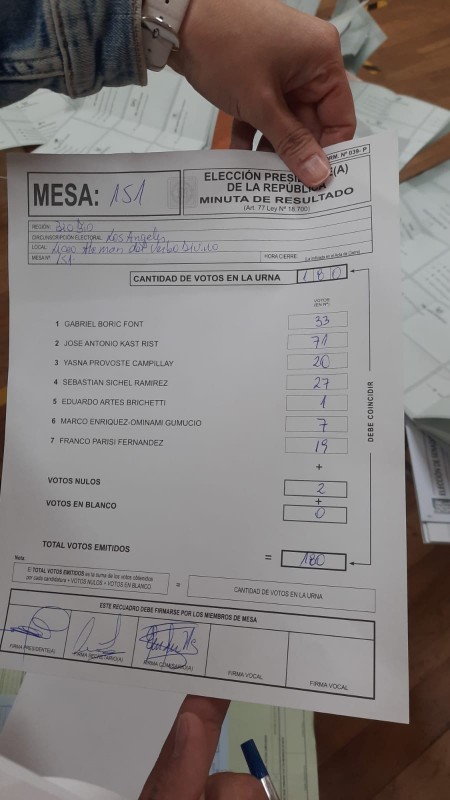 FORM. Nº 036- P
MESA: 151
ELECCIÓN PRESI E(A)
DE LA REPÚBLICA
MINUTA DE RESULTADO
(Art. 77 Ley Nº 18.700)
REGIÓN: BIO BIO
CIRCUNSCRIPCIÓN ELECTORAL: Los Angeles
LOCAL: Liceo Aleman del Verbo Divino
MESA Nº 151
HORA CIERRE:
CANTIDAD DE VOTOS EN LA URNA 180
VOTOS
(EN Nº)
1 GABRIEL BORIC FONT 33
2 JOSE ANTONIO KAST RIST 71
3 YASNA PROVOSTE CAMPILLAY 20
4 SEBASTIAN SICHEL RAMIREZ 27
5 EDUARDO ARTES BRICHETTI 1
6 MARCO ENRIQUEZ-OMINAMI GUMUCIO 7
7 FRANCO PARISI FERNANDEZ 19
+
VOTOS NULOS 2
+
VOTOS EN BLANCO 0
TOTAL VOTOS EMITIDOS = 180
DEBE COINCIDIR
Nota:
El TOTAL VOTOS EMITIDOS es la suma de los votos obtenidos
por cada candidatura + VOTOS NULOS + VOTOS EN BLANCO
= CANTIDAD DE VOTOS EN LA URNA
ESTE RECUADRO DEBE FIRMARSE POR LOS MIEMBROS DE MESA
FIRMA PRESIDENTE(A)
FIRMA SECRETARIO(A)
FIRMA COMISARIO(A)
FIRMA VOCAL
FIRMA VOCAL